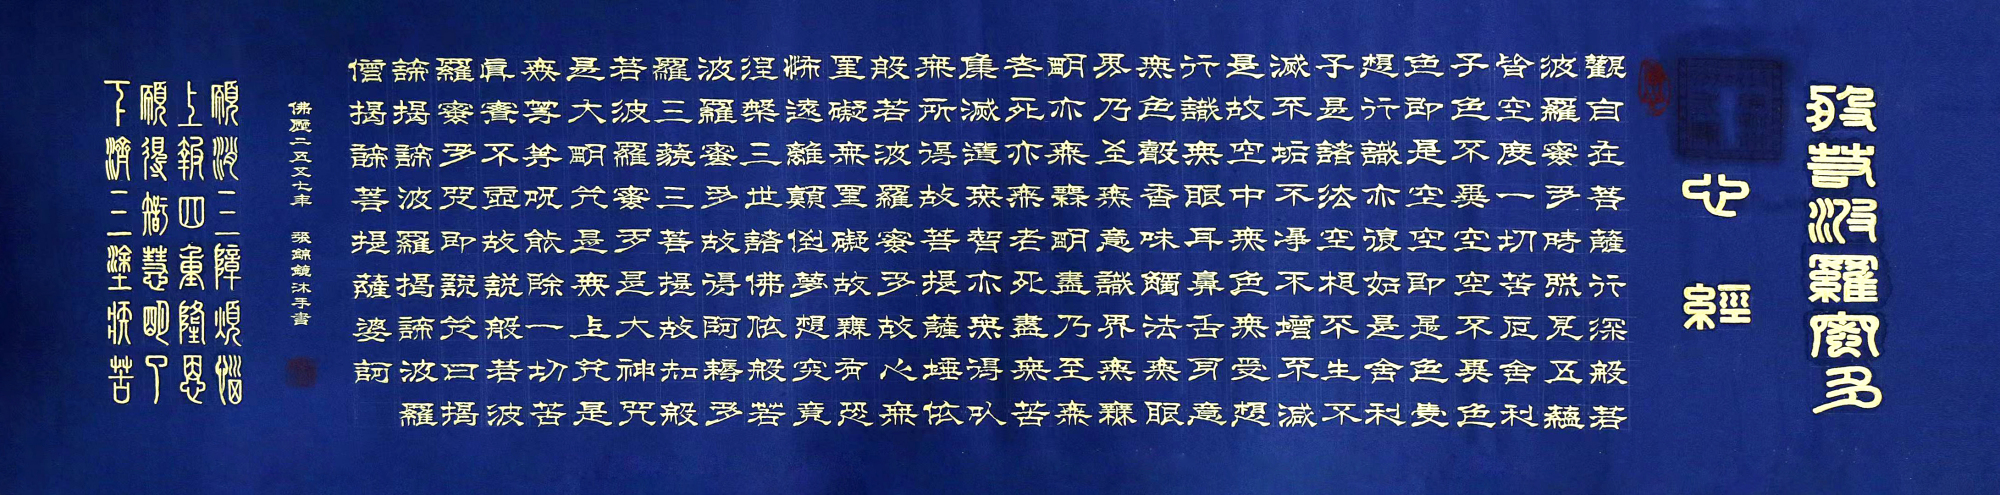 般若波羅蜜多
心經
觀自在菩薩行深般若
波羅蜜多時照見五蘊
皆空度一切苦厄舍利
子色不異空空不異色
色即是空空即是色受
想行識亦復如是舍利
子是諸法空相不生不
滅不垢不淨不增不減
是故空中無色無受想
行識無眼耳鼻舌身意
無色聲香味觸法無眼
界乃至無意識界無無
明亦無無明盡乃至無
老死亦無老死盡無苦
集滅道無智亦無得以
無所得故菩提薩埵依
般若波羅蜜多故心無
罣礙無罣礙故無有恐
怖遠離顛倒夢想究竟
涅槃三世諸佛依般若
波羅蜜多故得阿耨多
羅三藐三菩提故知般
若波羅蜜多是大神咒
是大明咒是無上咒是
無等等呪能除一切苦
真實不虛故說般若波
羅蜜多咒即說咒曰揭
諦揭諦波羅揭諦波羅
僧揭諦菩提薩婆訶
佛歷二五五七年 張錦鏡沐手書
願消三障煩惱
上報四重隆恩
願得智慧明了
下濟三塗疾苦